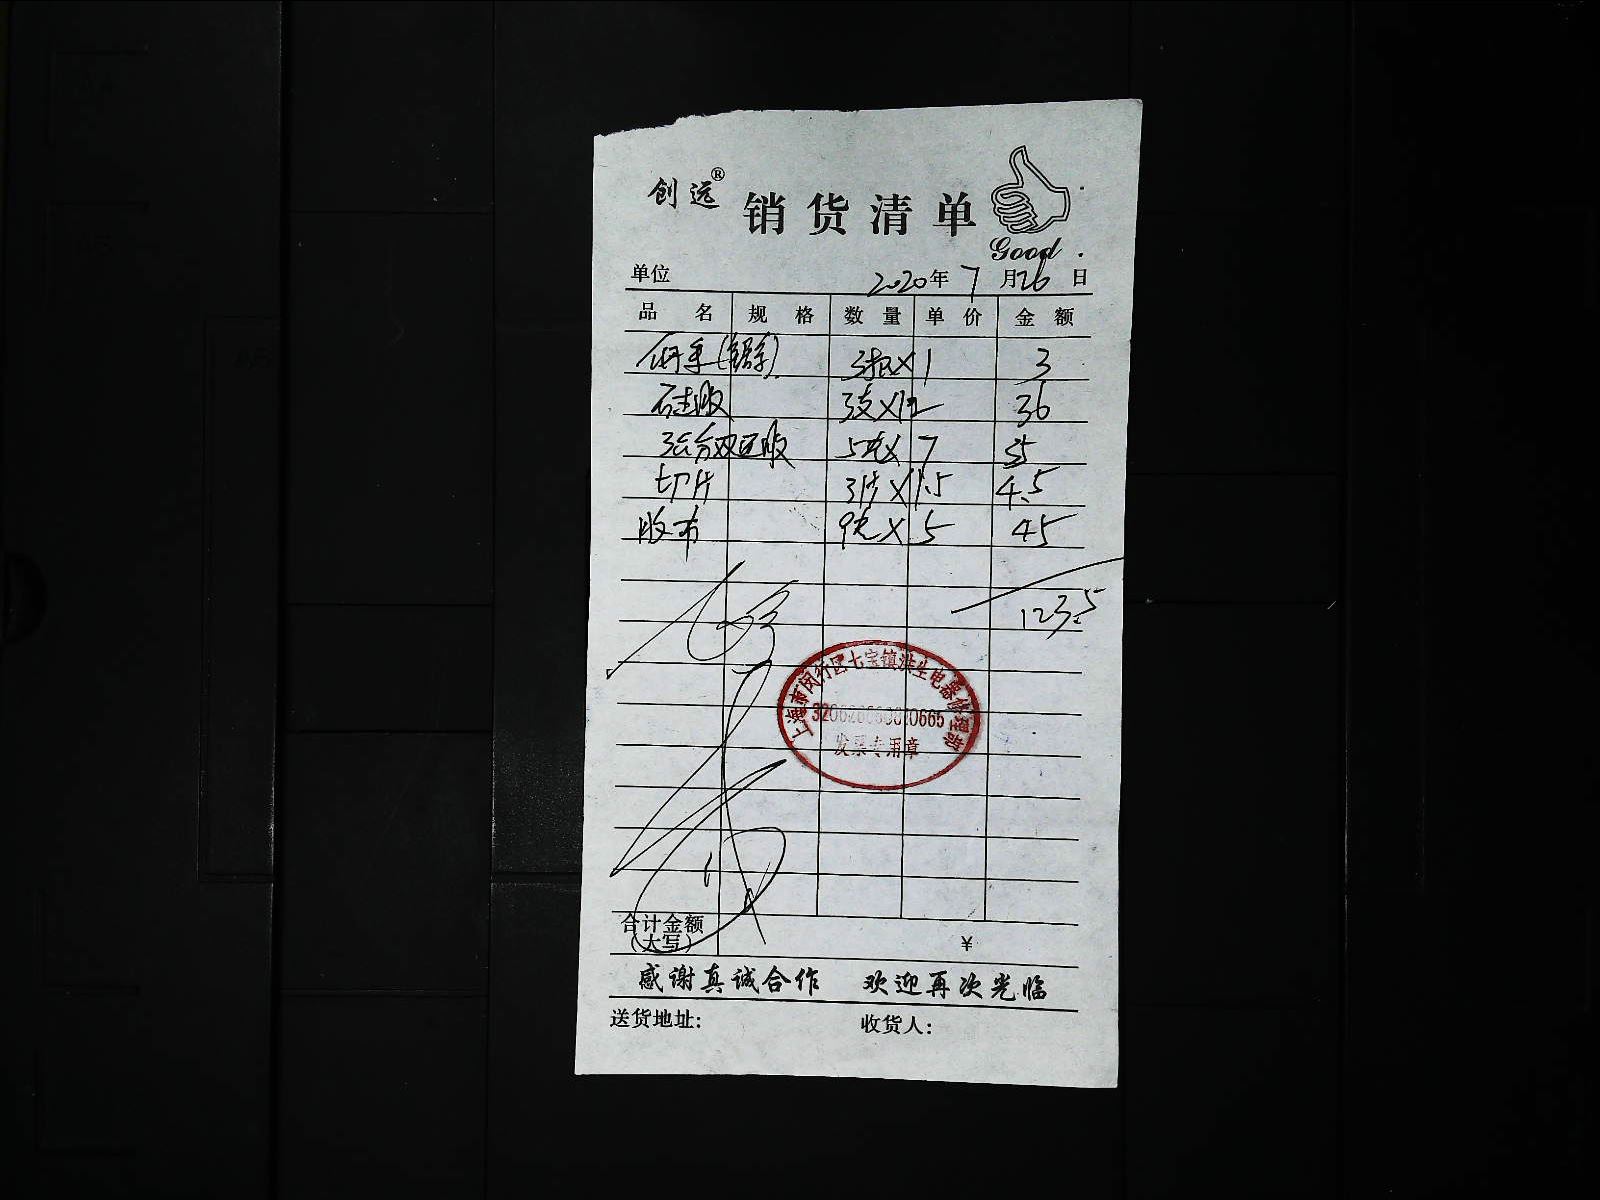 创远® 销货清单
Good
单位 2020年 7月26日
品名 规格 数量 单价 金额
3根×1 3
硅胶 3支×12 36
强力双面胶 5卷×7 35
切片 3片×1.5 4.5
胶布 9卷×5 45
123.5
上海市闵行区七宝镇洪生电器修理部
发票专用章
合计金额
(大写) ¥
感谢真诚合作 欢迎再次光临
送货地址: 收货人: